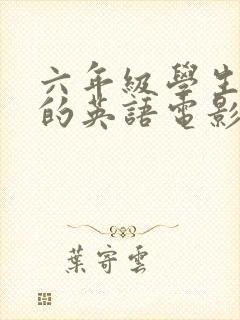 六年級學生
的英語電影
葉寄雲